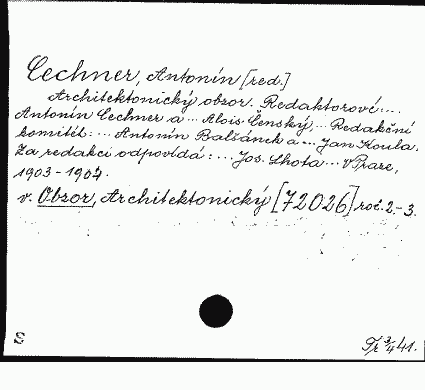 Cechner, Antonín [red.]
Architektonický obzor. Redaktorové: ...
Antonín Cechner a ... Alois Čenský, ... Redakční
komitét: ... Antonín Balšánek a ... Jan Koula.
Za redakci odpovídá: ... Jos. Lhota ... V Praze,
1903-1904.
v. Obzor, Architektonický [72026] roč. 2.-3.
Tř 3/4 41.